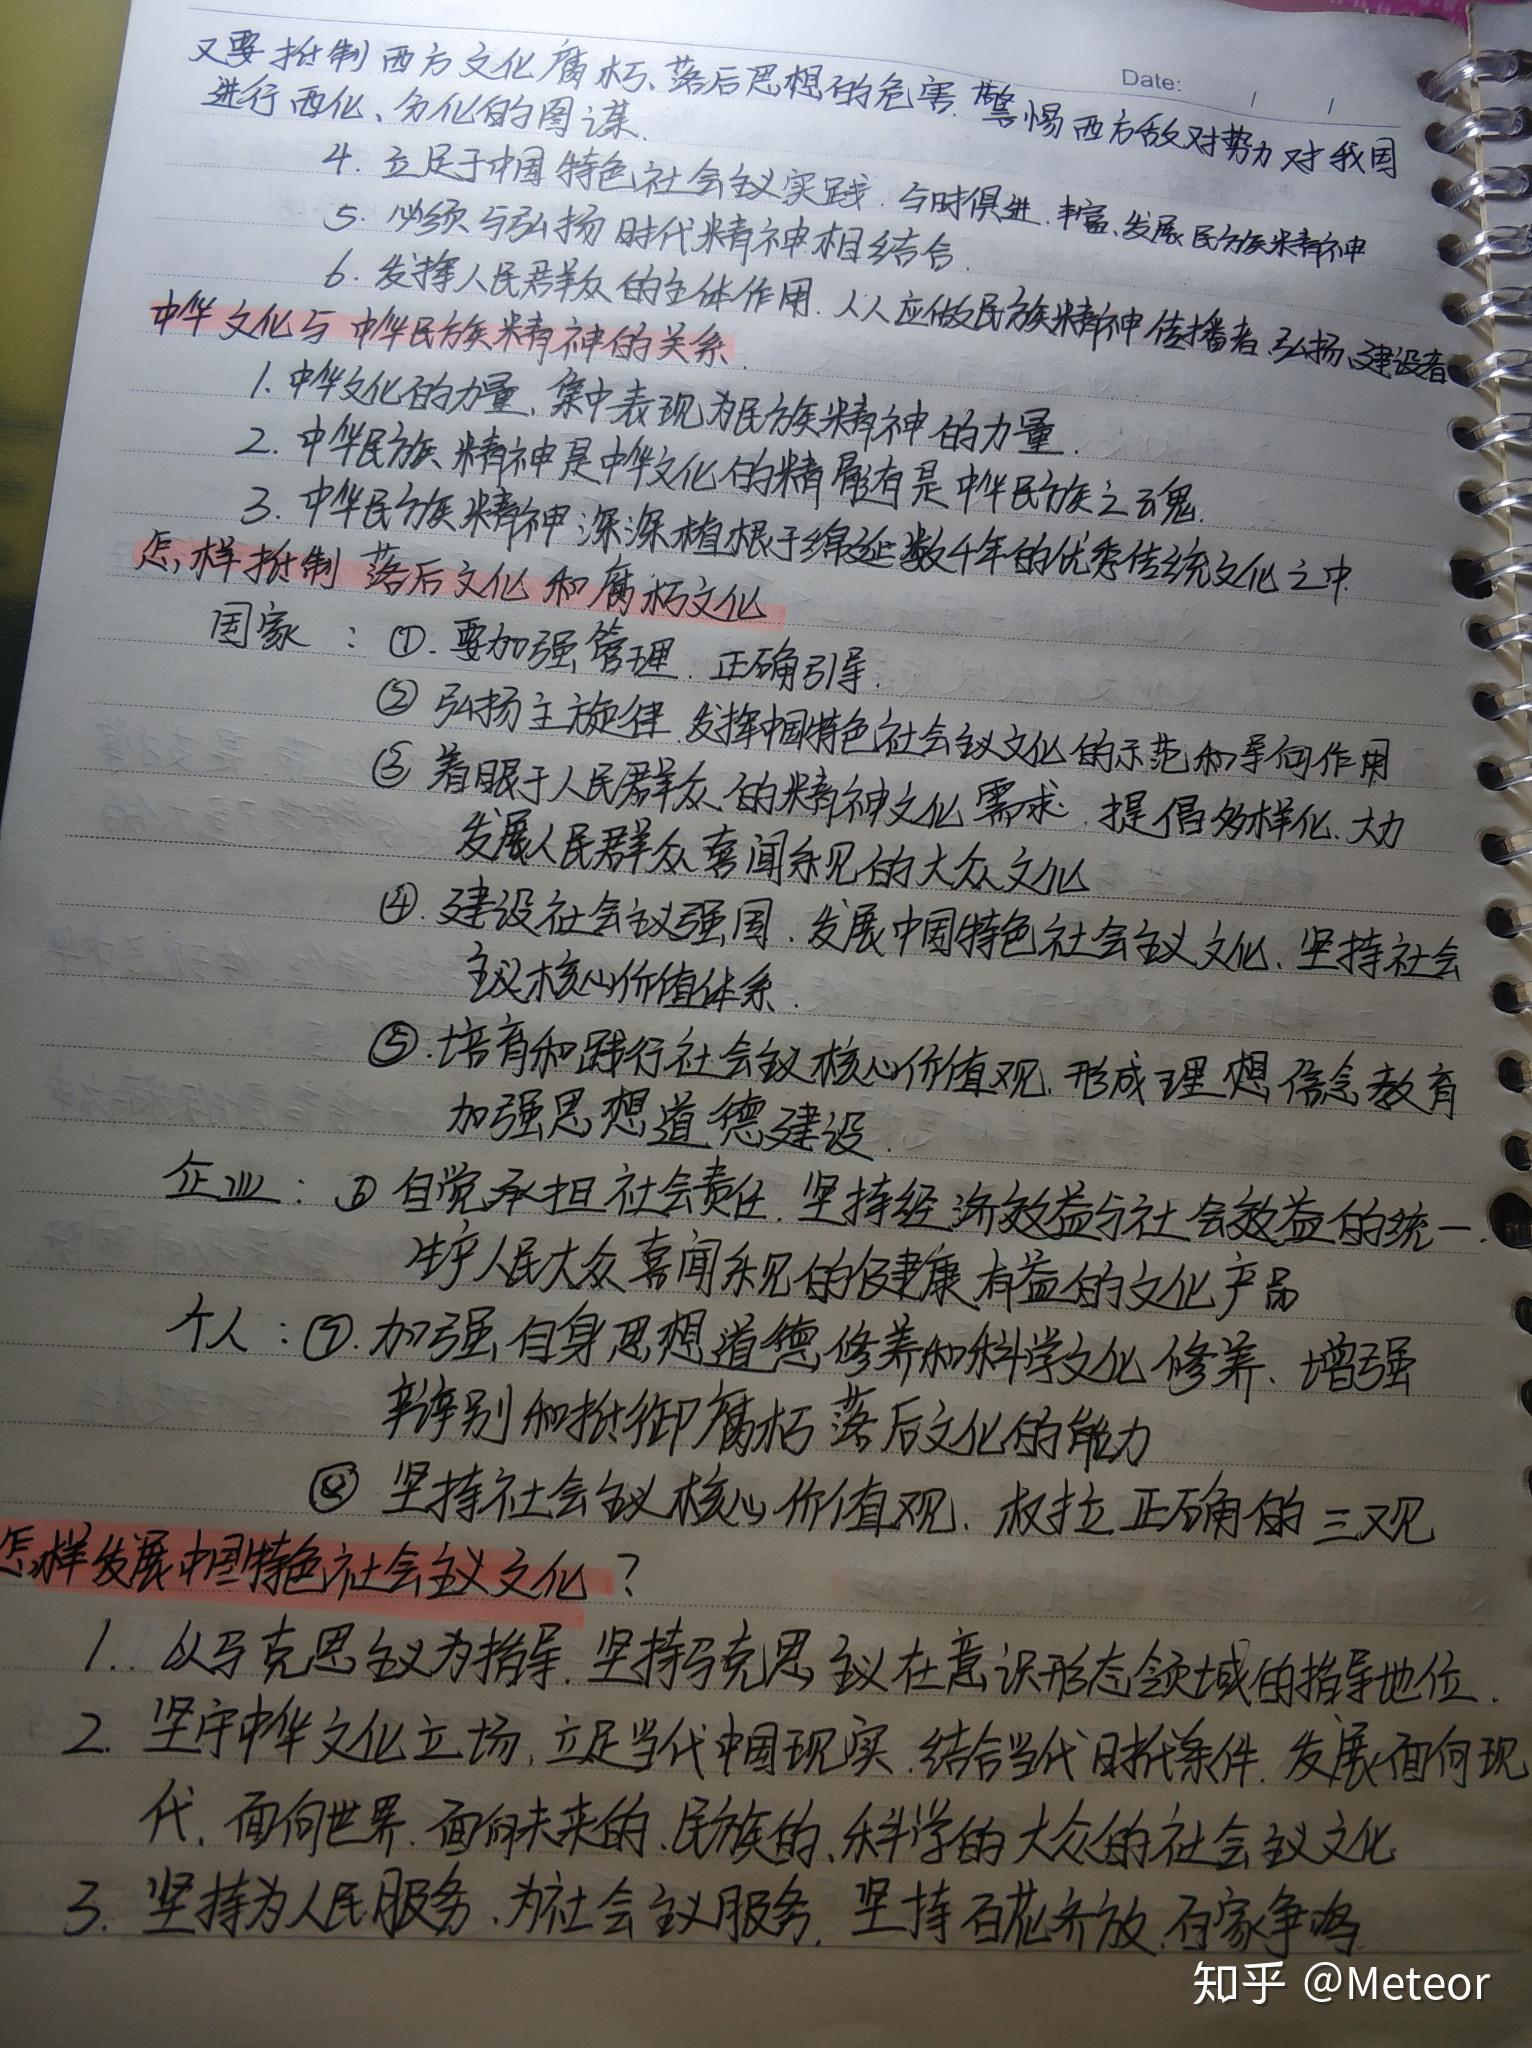 Date: / /
又要抵制西方文化腐朽、落后思想的危害.警惕西方敌对势力对我国
进行西化、分化的图谋.
4. 立足于中国特色社会主义实践.与时俱进.丰富、发展民族精神
5. 必须与弘扬时代精神相结合.
6. 发挥人民群众的主体作用.人人应做民族精神传播者.弘扬、建设者
中华文化与中华民族精神的关系.
1. 中华文化的力量、集中表现为民族精神的力量.
2. 中华民族精神是中华文化的精髓有是中华民族之魂.
3. 中华民族精神深深植根于绵延数千年的优秀传统文化之中.
怎样抵制落后文化和腐朽文化
国家:①.要加强管理.正确引导.
② 弘扬主旋律.发挥中国特色社会主义文化的示范和导向作用
③ 着眼于人民群众的精神文化需求.提倡多样化、大力
发展人民群众喜闻乐见的大众文化
④.建设社会主义强国.发展中国特色社会主义文化、坚持社会
主义核心价值体系.
⑤.培育和践行社会主义核心价值观.形成理想信念教育
加强思想道德建设.
企业:⑥ 自觉承担社会责任.坚持经济效益与社会效益的统一.
生产人民大众喜闻乐见的健康有益的文化产品
个人:⑦.加强自身思想道德修养和科学文化修养、增强
辨别和抵御腐朽落后文化的能力
⑧ 坚持社会主义核心价值观、权拉正确的三观
怎样发展中国特色社会主义文化?
1. 以马克思主义为指导.坚持马克思主义在意识形态领域的指导地位.
2. 坚守中华文化立场,立足当代中国现实.结合当代时代条件.发展面向现
代.面向世界.面向未来的、民族的、科学的大众的社会主义文化
3. 坚持为人民服务、为社会主义服务.坚持百花齐放.百家争鸣
知乎 @Meteor